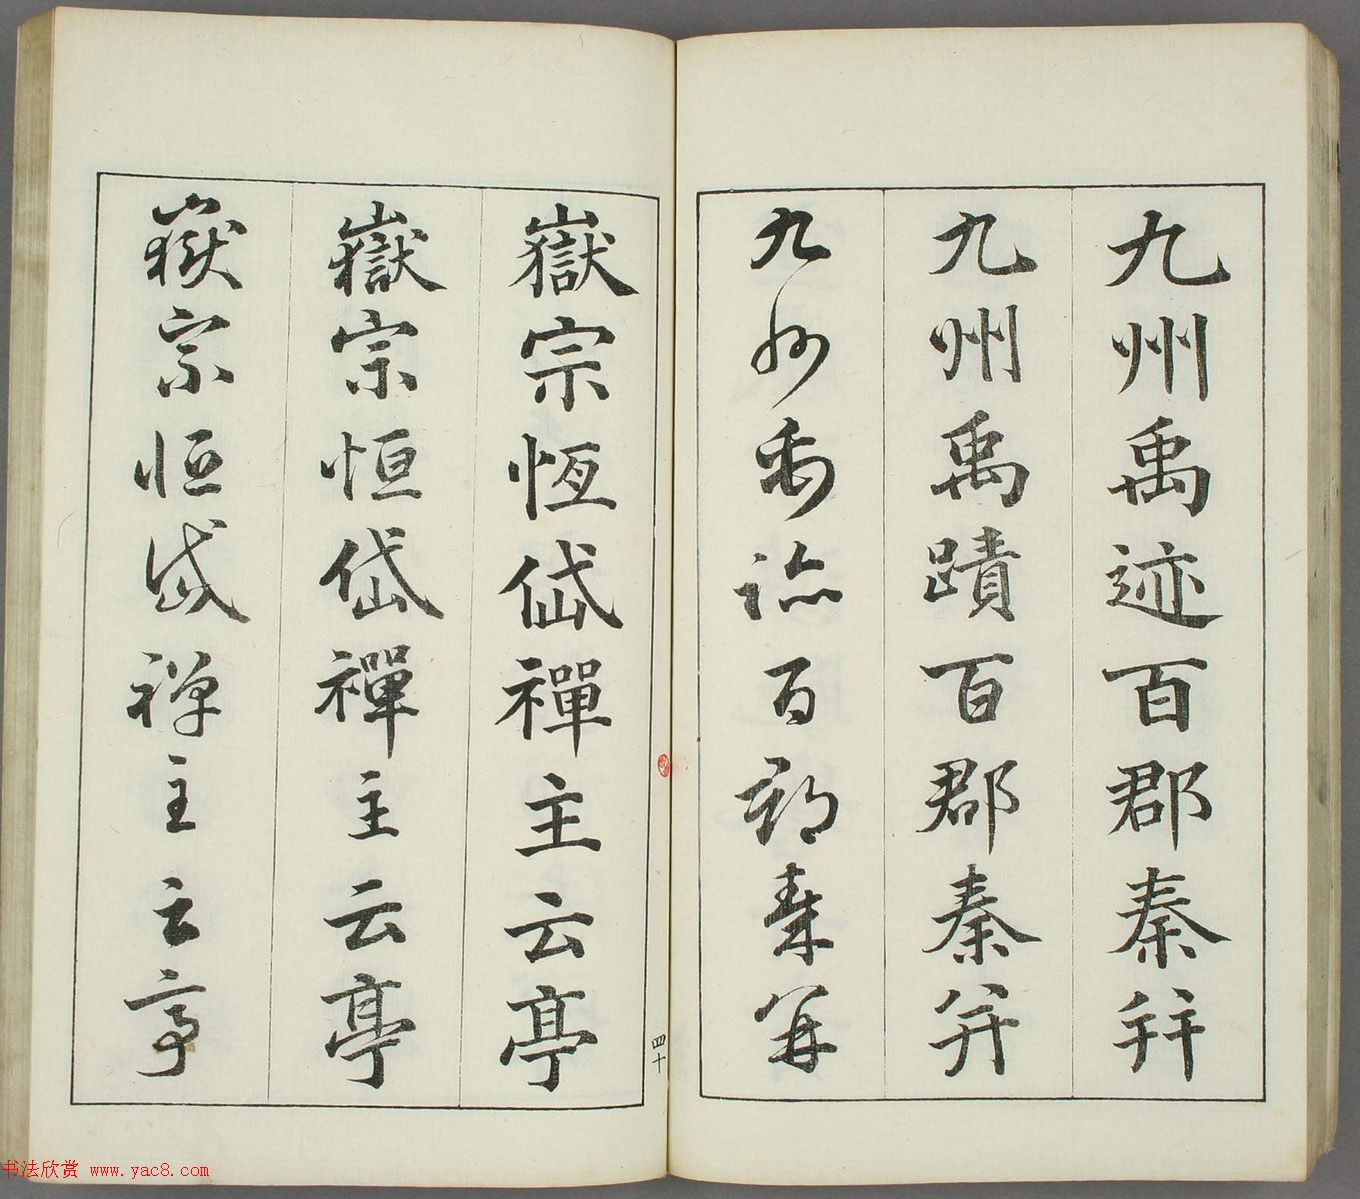 九州禹迹百郡秦并
九州禹蹟百郡秦并
九州禹迹百郡秦并
嶽宗恆岱禪主云亭
嶽宗恒岱禪主云亭
嶽宗恒岱禅主云亭
四十
书法欣赏 www.yac8.com